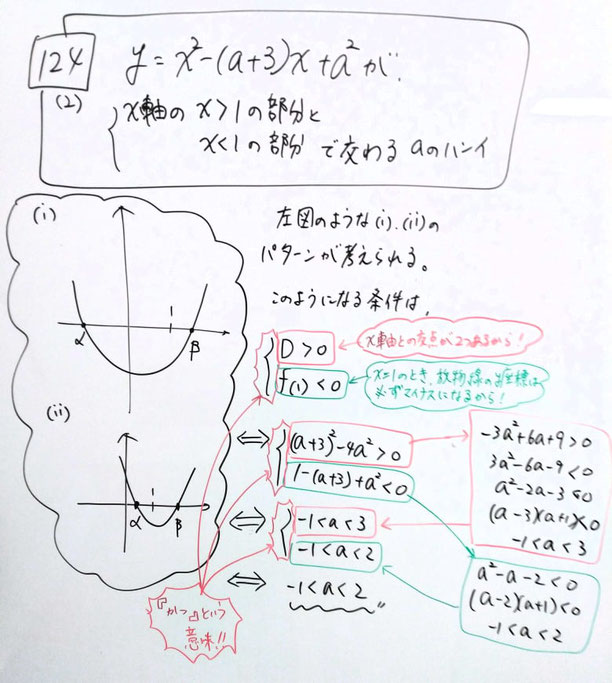 124
y = x²-(a+3)x+a² が、
(2)
x軸の x>1の部分と
x<1の部分 で交わる aのハンイ
(i)
1
α
β
(ii)
1
α
β
左図のような(i).(ii)の
パターンが考えられる。
このようになる条件は、
D>0
x軸との交点が2つあるから!
f(1)<0
x=1のとき、放物線のy座標は
必ずマイナスになるから!
⇔ (a+3)²-4a²>0
1-(a+3)+a²<0
-3a²+6a+9>0
3a²-6a-9<0
a²-2a-3<0
(a-3)(a+1)<0
-1<a<3
⇔ -1<a<3
-1<a<2
a²-a-2<0
(a-2)(a+1)<0
-1<a<2
⇔ -1<a<2 〃
『かつ』という
意味!!